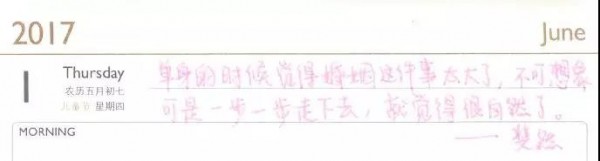 2017 June
1 Thursday
农历五月初七
儿童节 星期四
单身的时候觉得婚姻这件事太大了，不可想象
可是一步一步走下去，就觉得很自然了。
——斐然
MORNING